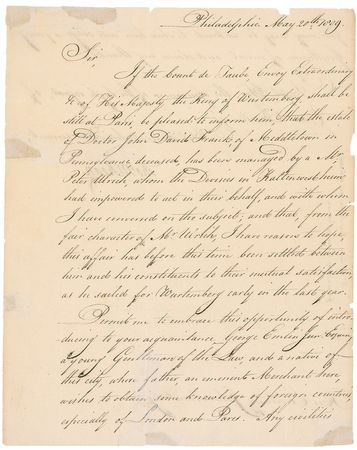 Philadelphia May 20th 1809.
Sir
If the Count de Taube Envoy Extraordinary
&c of His Majesty the King of Wurtemberg shall be
still at Paris, be pleased to inform him, that the estate
of Doctor John David Franck of Middletown in
Pennsylvania deceased, has been managed by a Mr.
Peter Ulrich, whom the Devisees in
had empowered to act in their behalf, and with whom
I have conversed on the subject; and that, from the
fair character of Mr. Ulrich, I have reason to hope,
this affair has before this time been settled between
him and his constituents to their mutual satisfaction
as he sailed for Wurtemberg early in the last year.
Permit me to embrace this opportunity of intro-
ducing to your acquaintance George Emlen Junr. Esquire,
a young Gentleman of the Law, and a native of
this city, whose father, an eminent Merchant here,
wishes to obtain some knowledge of foreign countries,
especially of London and Paris. Any civilities